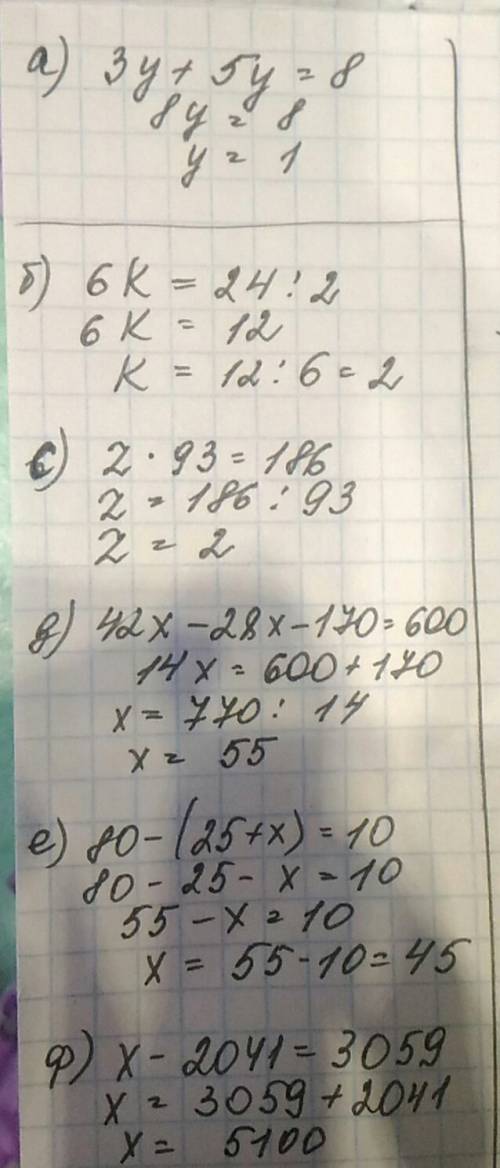 а) 3y + 5y = 8
8y = 8
y = 1
б) 6K = 24 : 2
6K = 12
K = 12 : 6 = 2
с) Z · 93 = 186
Z = 186 : 93
Z = 2
д) 42x - 28x - 170 = 600
14x = 600 + 170
x = 770 : 14
x = 55
е) 80 - (25 + x) = 10
80 - 25 - x = 10
55 - x = 10
x = 55 - 10 = 45
ф) x - 2041 = 3059
x = 3059 + 2041
x = 5100